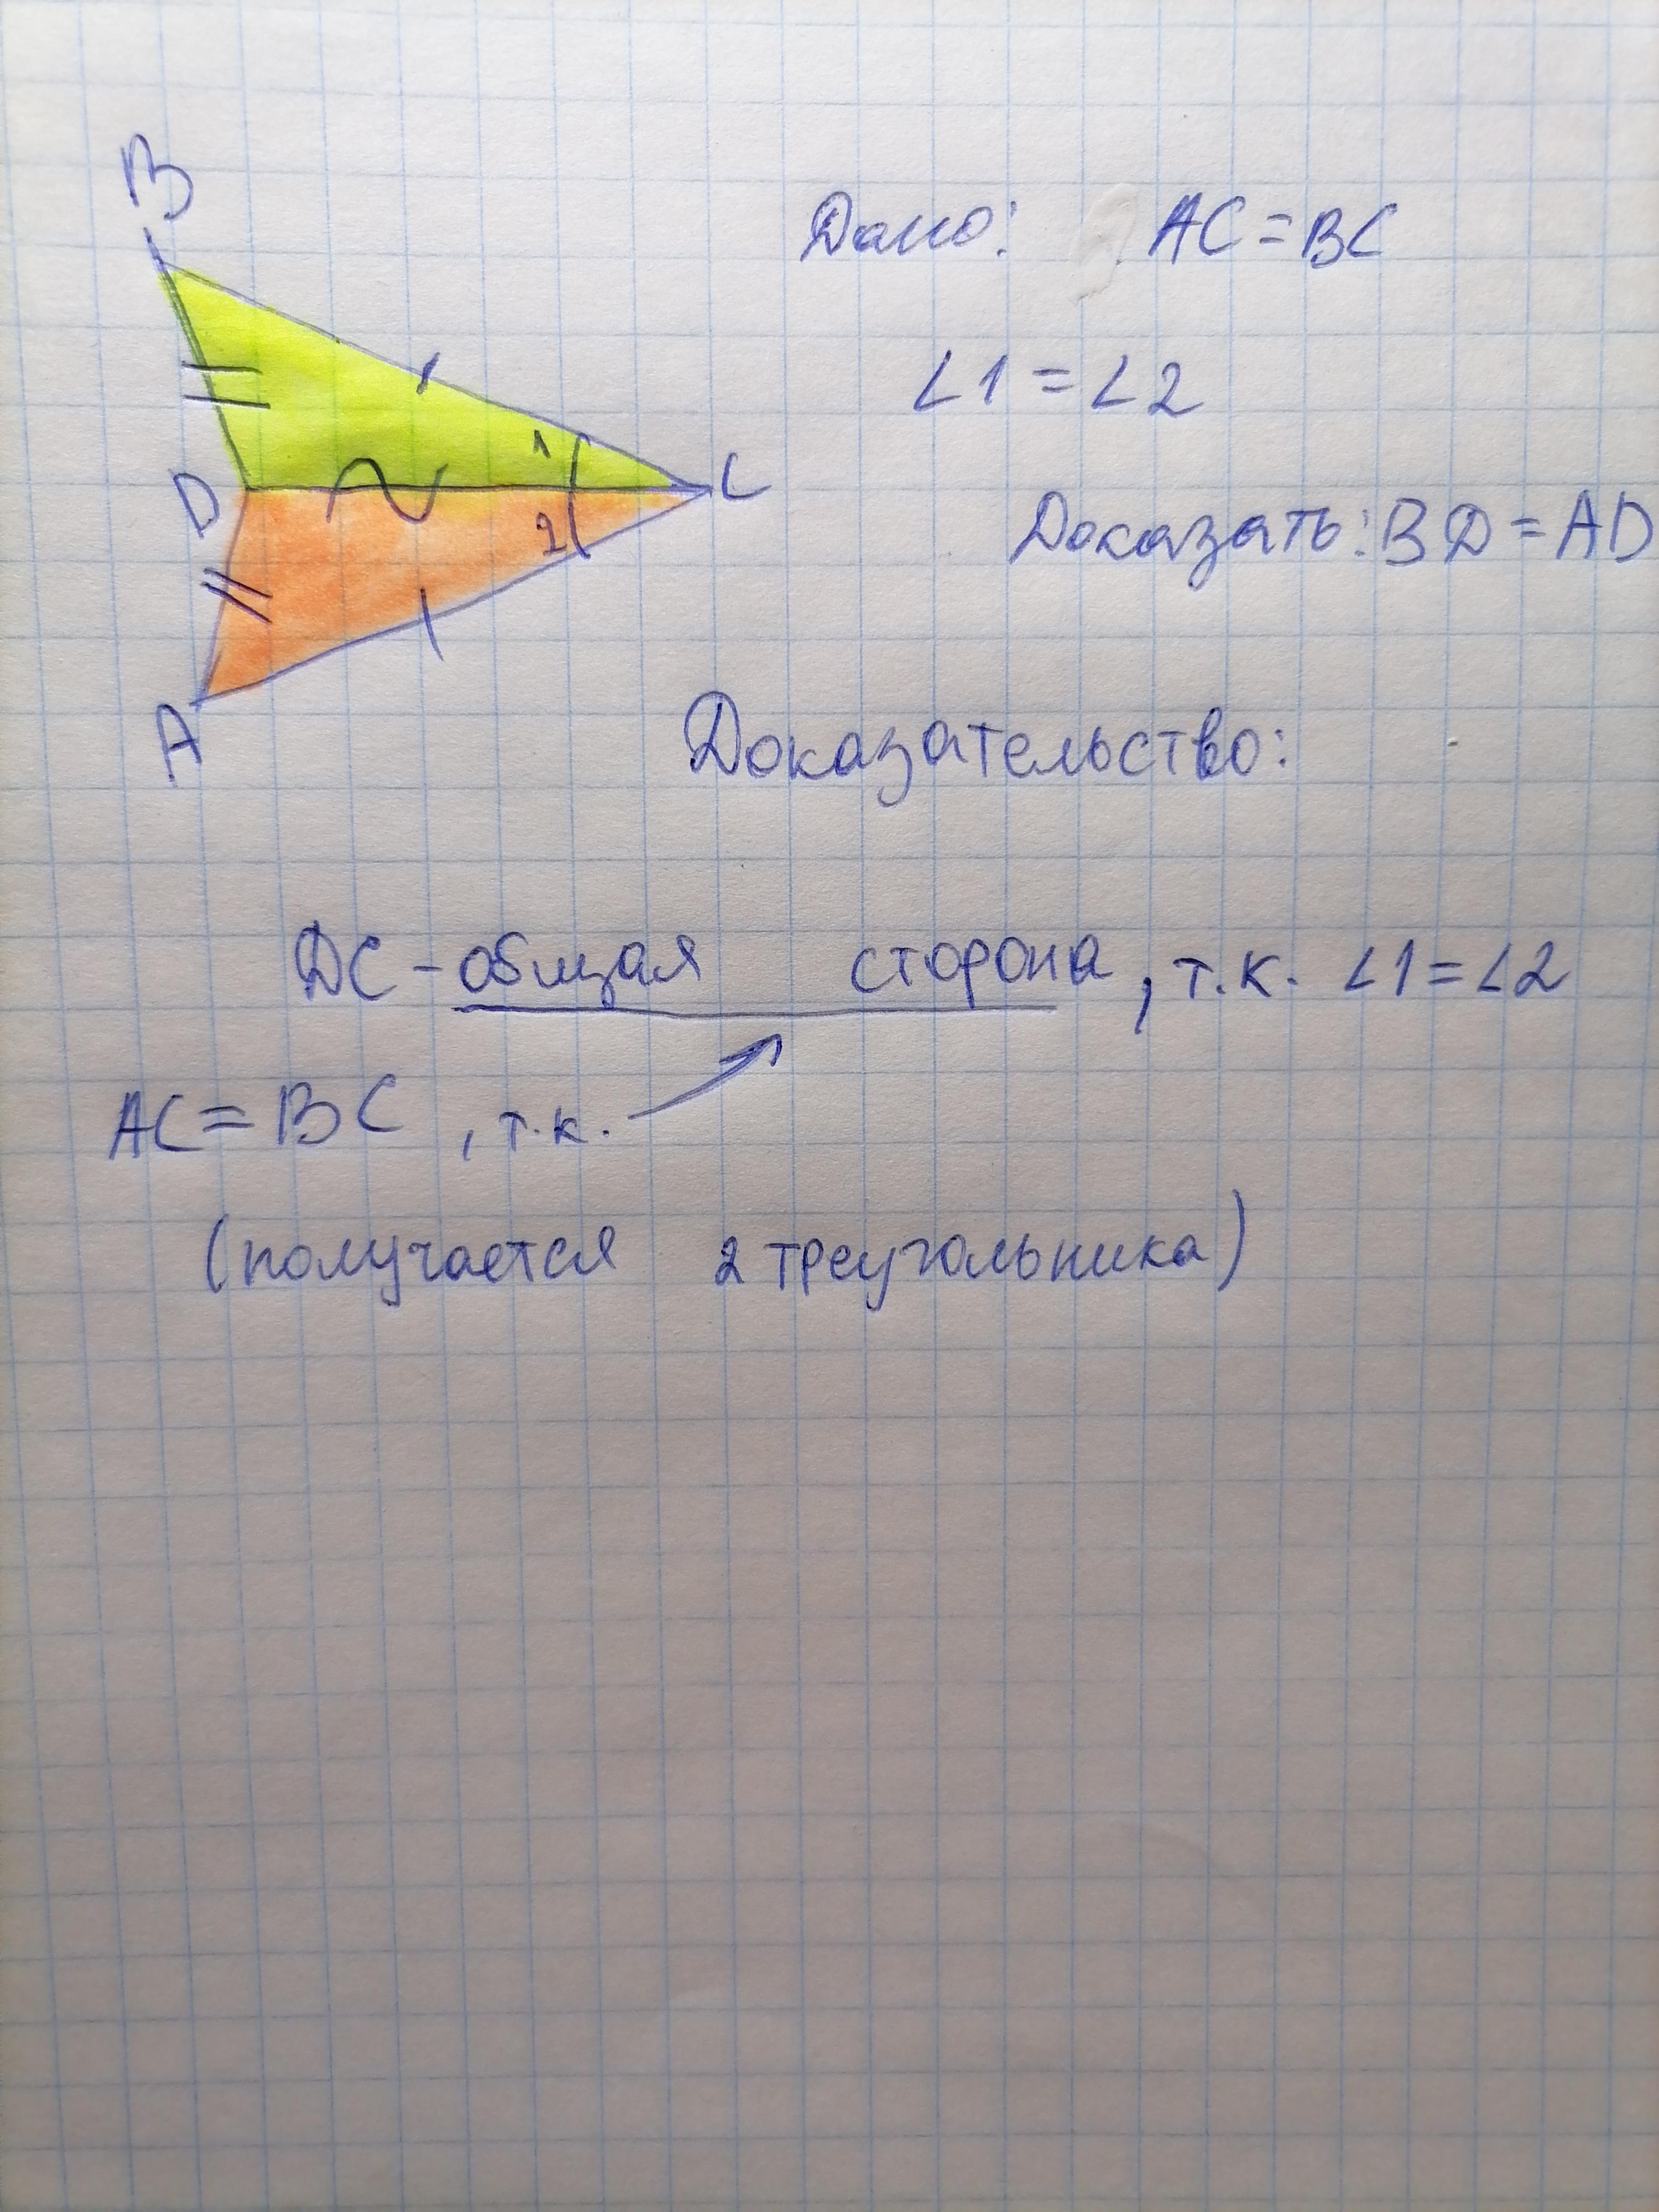 B
Дано: AC = BC
∠1 = ∠2
1
D
C
2
Доказать: BD = AD
A
Доказательство:
DC - общая сторона, т.к. ∠1 = ∠2
AC = BC, т.к. ↗
(получается 2 треугольника)